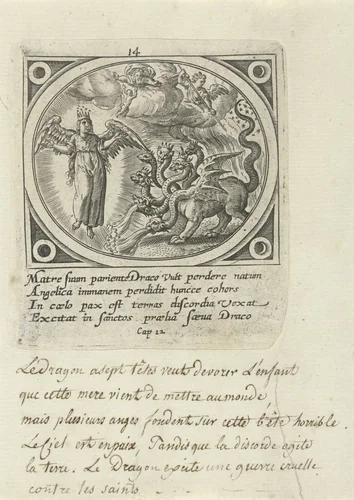 14
Matre suum pariente Draco Vult perdere natum
Angelica immanem perdidit huncce cohors
In cœlo pax est terras discordia Vexat
Excitat in sanctos prælia sæua Draco
Cap 12
Le dragon a sept têtes veut devorer L'enfant
que cette mere vient de mettre au monde,
mais plusieurs anges fondent sur cette bête horrible.
Le Ciel est en paix, Tandis que la discorde agite
la terre. Le Dragon excite une guerre cruelle
contre les saints.